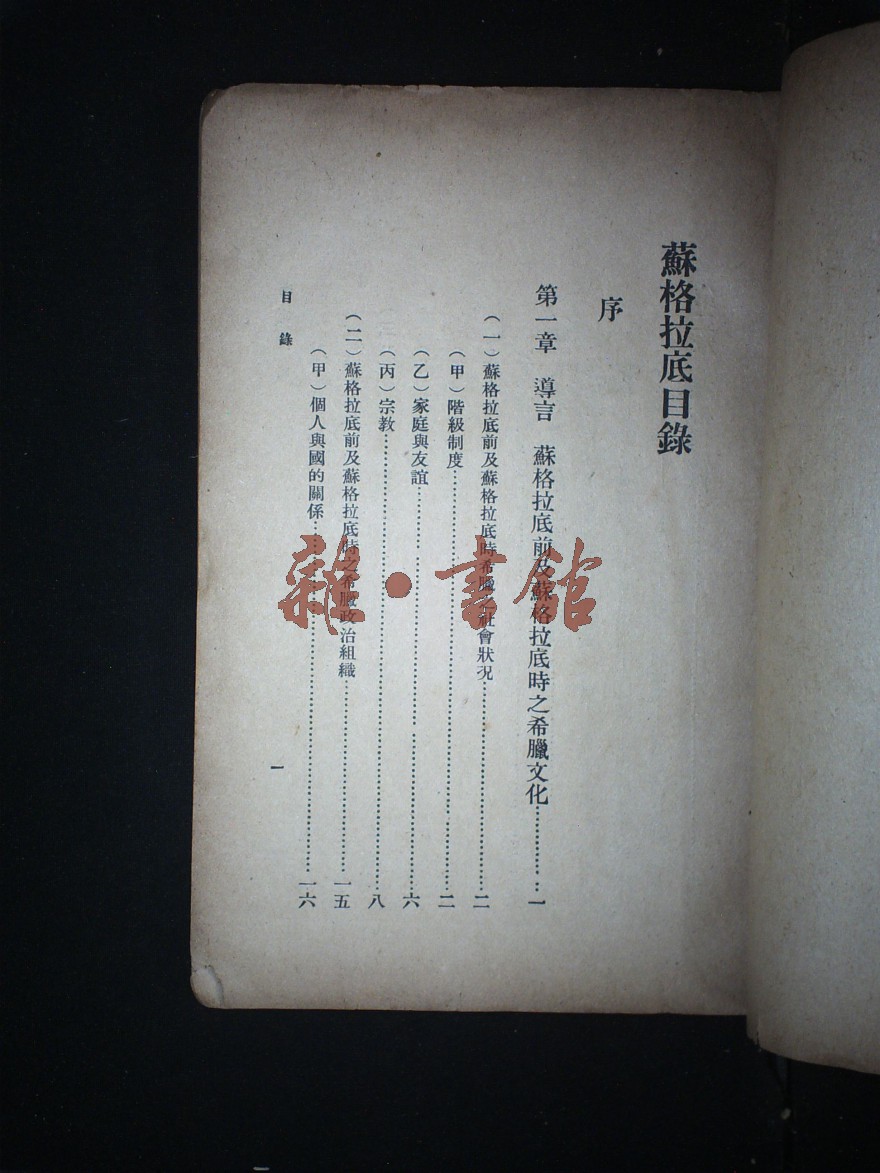 蘇格拉底目錄
序
第一章 導言 蘇格拉底前及蘇格拉底時之希臘文化……………一
(一)蘇格拉底前及蘇格拉底時希臘之社會狀況……………二
(甲)階級制度……………二
(乙)家庭與友誼……………六
(丙)宗教……………八
(二)蘇格拉底前及蘇格拉底時之希臘政治組織……………一五
(甲)個人與國的關係……………一六
目錄
一
雜·書館